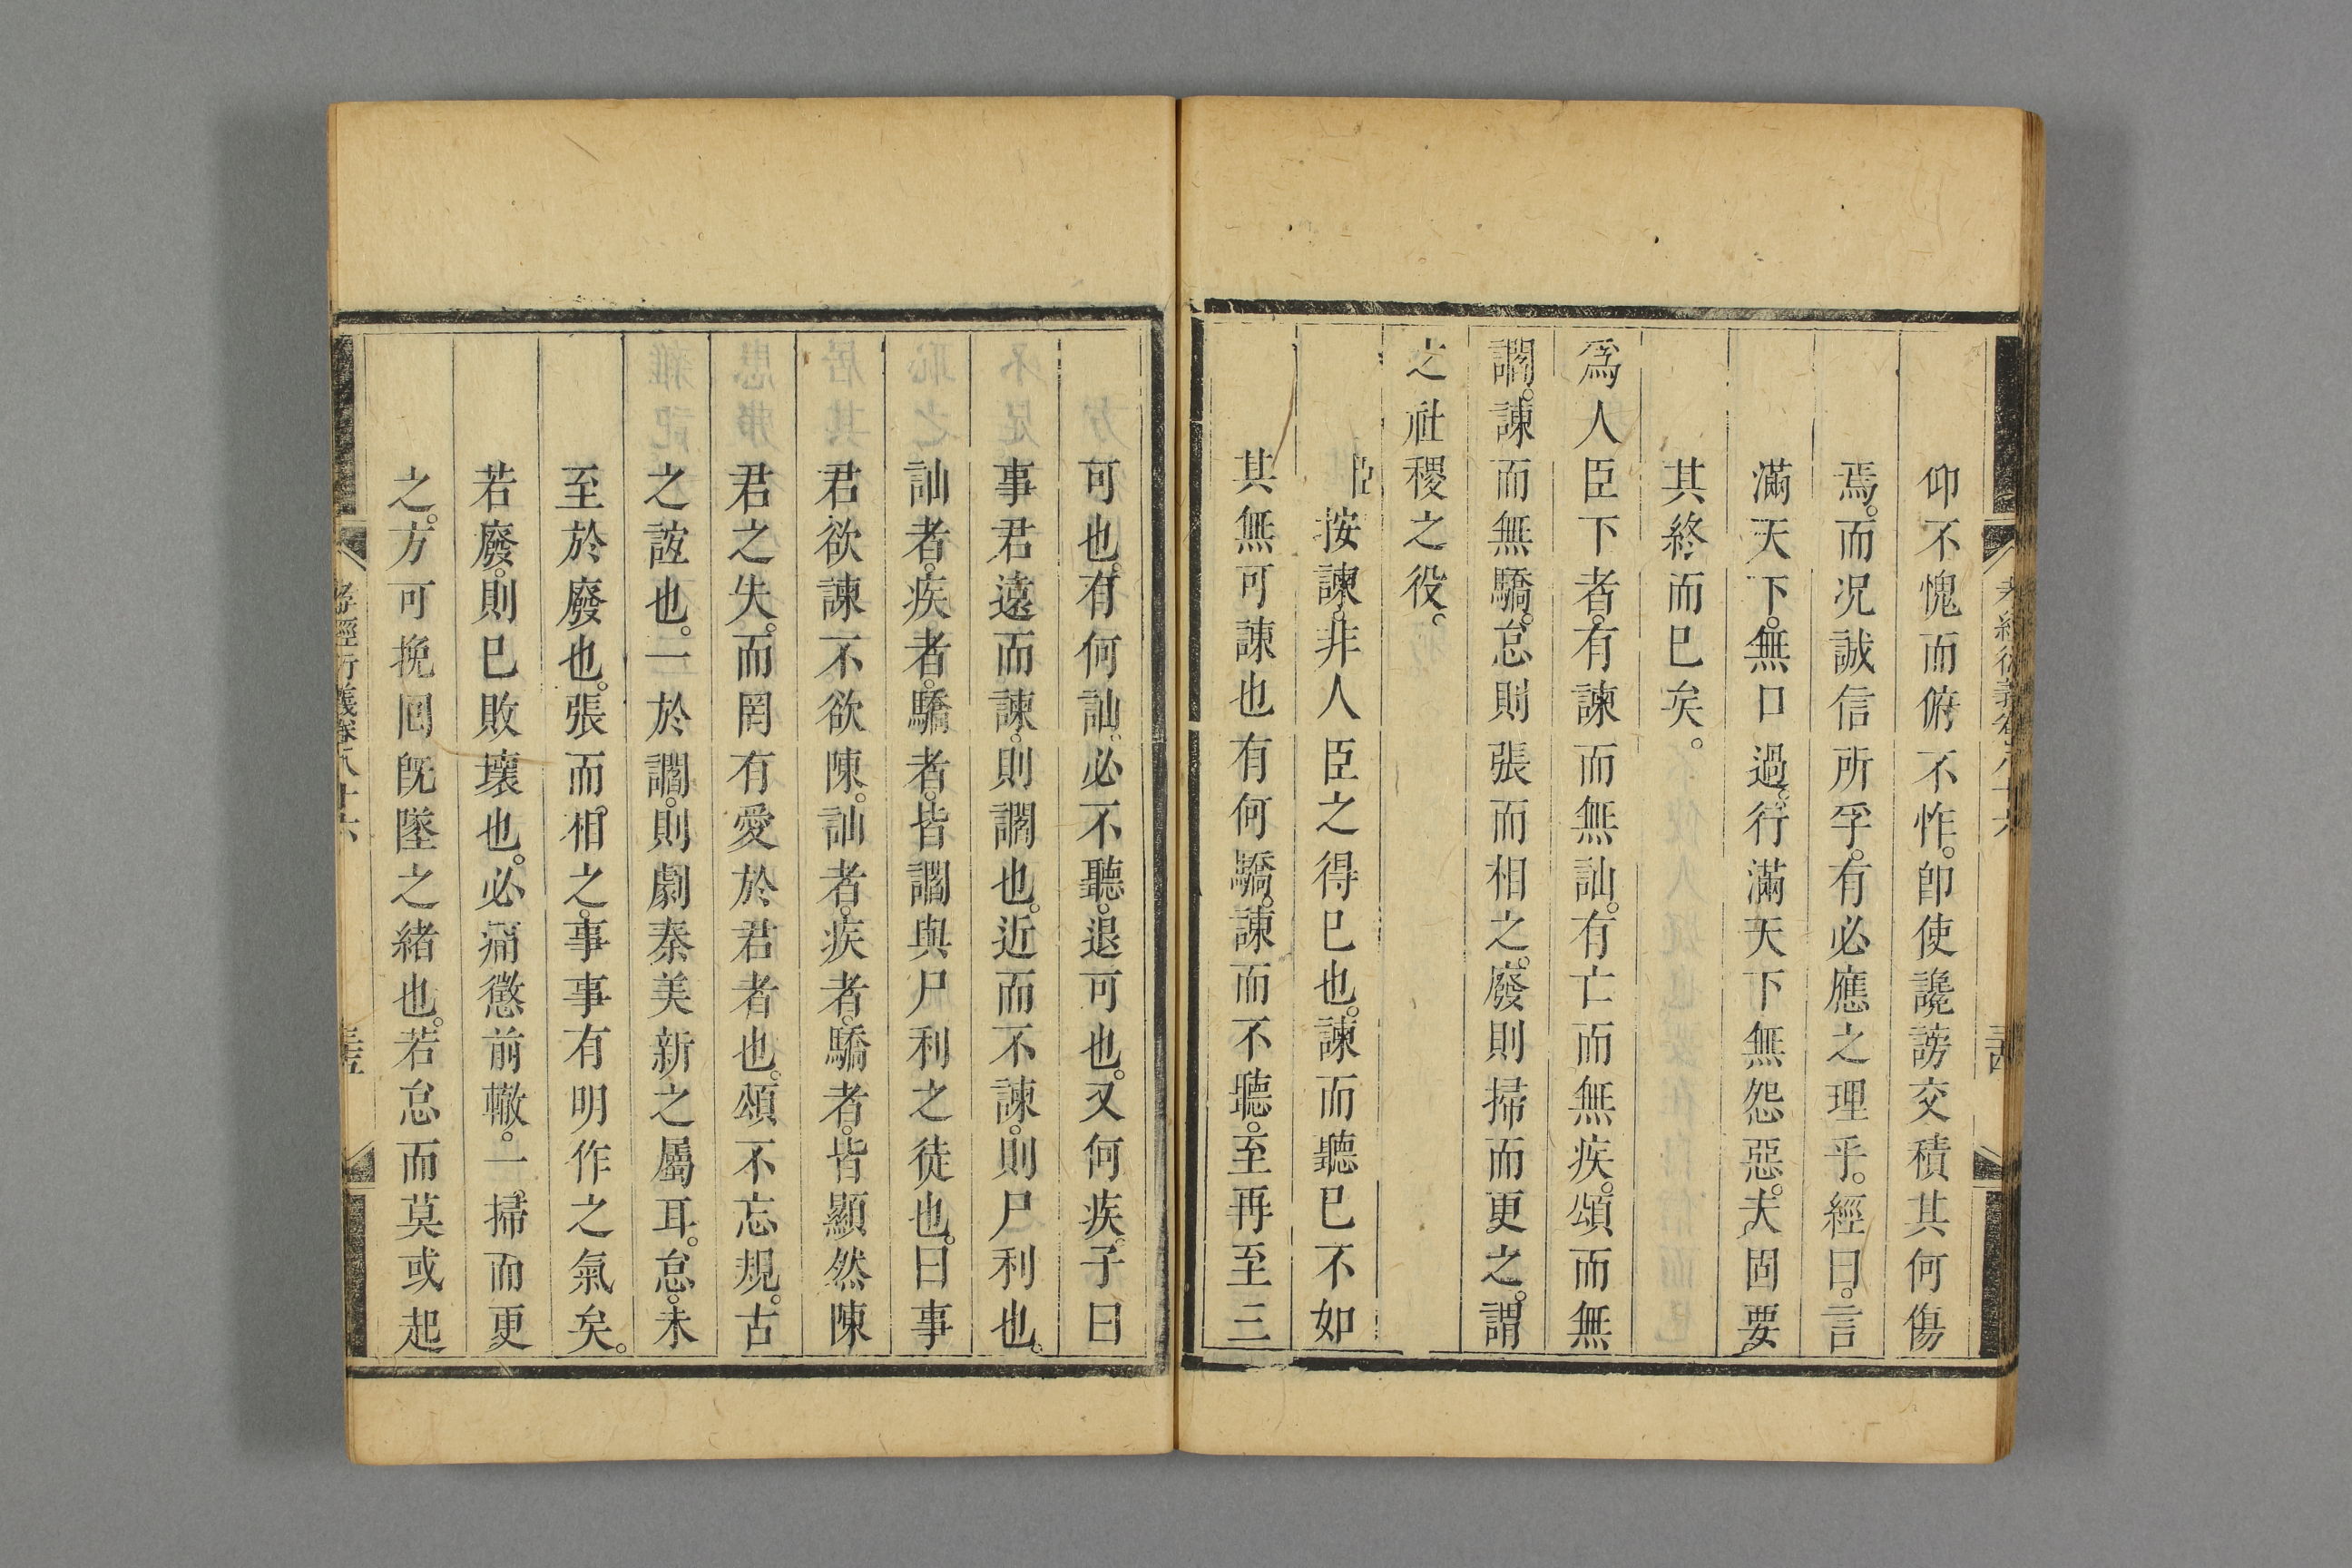 仰不愧而俯不怍。卽使讒謗交積其何傷
焉。而况誠信所孚。有必應之理乎。經曰。言
滿天下。無口過。行滿天下無怨惡。夫固要
其終而已矣。
爲人臣下者。有諫而無訕。有亡而無疾。頌而無
讇。諫而無驕。怠則張而相之。廢則掃而更之。謂
之社稷之役。
臣按諫。非人臣之得已也。諫而聽已不如
其無可諫也有何驕。諫而不聽。至再至三
可也。有何訕。必不聽。退可也。又何疾。子曰
事君遠而諫。則讇也。近而不諫。則尸利也。
訕者。疾者。驕者。皆讇與尸利之徒也。曰事
君欲諫不欲陳。訕者。疾者。驕者。皆顯然陳
君之失。而罔有愛於君者也。頌不忘規。古
之誼也。一於讇。則劇秦美新之屬耳。怠。未
至於廢也。張而相之。事事有明作之氣矣。
若廢。則已敗壞也。必痛懲前轍。一掃而更
之。方可挽囘旣墜之緒也。若怠而莫或起
孝經衍義卷八十六